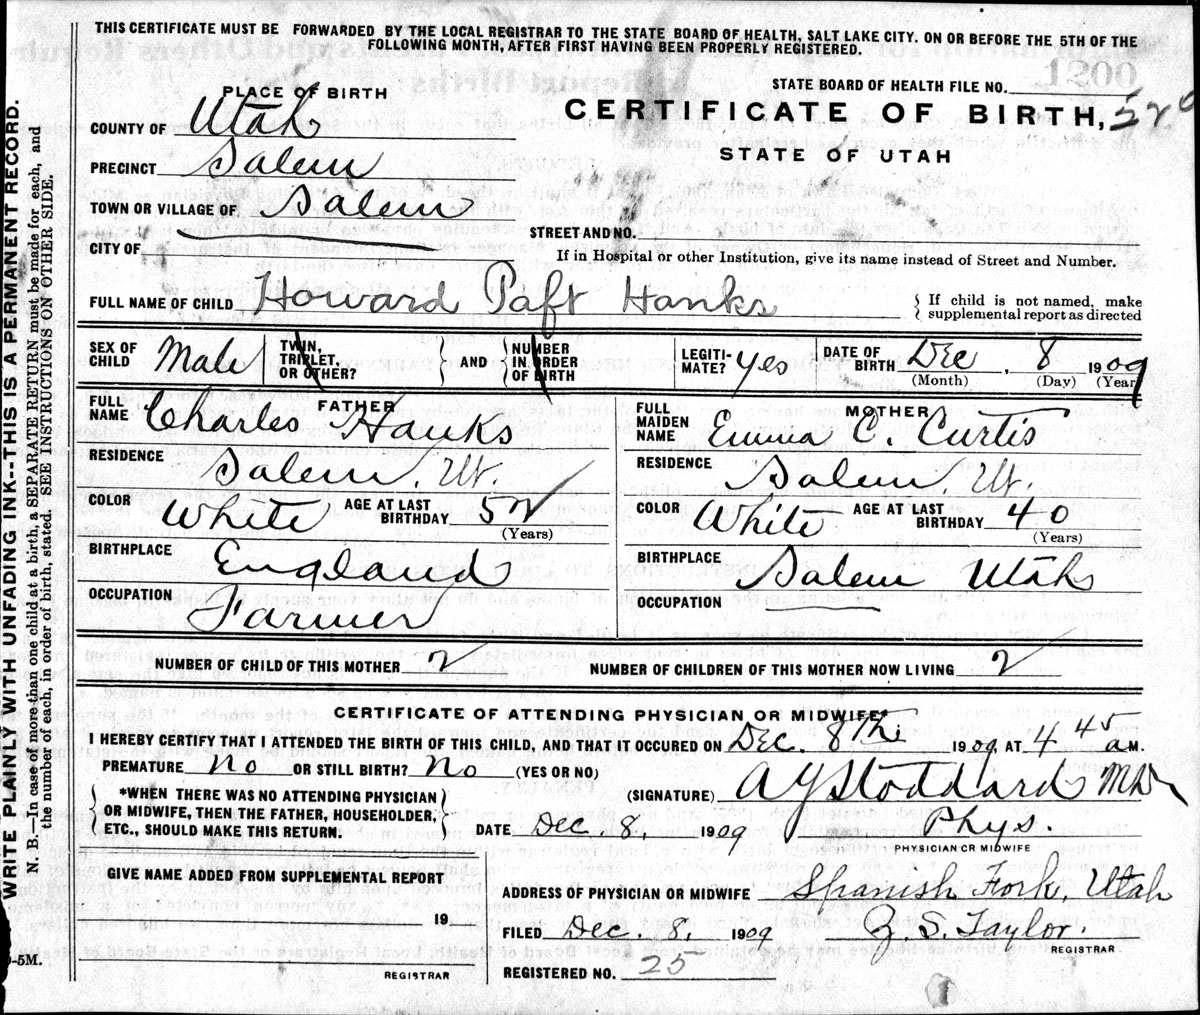 THIS CERTIFICATE MUST BE FORWARDED BY THE LOCAL REGISTRAR TO THE STATE BOARD OF HEALTH, SALT LAKE CITY. ON OR BEFORE THE 5TH OF THE
FOLLOWING MONTH, AFTER FIRST HAVING BEEN PROPERLY REGISTERED.
WRITE PLAINLY WITH UNFADING INK--THIS IS A PERMANENT RECORD.
N. B.—In case of more than one child at a birth, a SEPARATE RETURN must be made for each, and
the number of each, in order of birth, stated. SEE INSTRUCTIONS ON OTHER SIDE.
STATE BOARD OF HEALTH FILE NO.
PLACE OF BIRTH
CERTIFICATE OF BIRTH,
COUNTY OF Utah
STATE OF UTAH
PRECINCT Salem
TOWN OR VILLAGE OF Salem
STREET AND NO.
CITY OF
If in Hospital or other Institution, give its name instead of Street and Number.
FULL NAME OF CHILD Howard Taft Hanks
If child is not named, make
supplemental report as directed
SEX OF CHILD Male TWIN, TRIPLET, OR OTHER? AND NUMBER IN ORDER OF BIRTH LEGITI-MATE? Yes DATE OF BIRTH Dec, 8 1909
(Month) (Day) (Year)
FATHER
FULL NAME Charles Hanks
RESIDENCE Salem, Ut.
COLOR White AGE AT LAST BIRTHDAY 52
(Years)
BIRTHPLACE England
OCCUPATION Farmer
MOTHER
FULL MAIDEN NAME Emma C. Curtis
RESIDENCE Salem, Ut.
COLOR White AGE AT LAST BIRTHDAY 40
(Years)
BIRTHPLACE Salem Utah
OCCUPATION
NUMBER OF CHILD OF THIS MOTHER 2 NUMBER OF CHILDREN OF THIS MOTHER NOW LIVING 2
CERTIFICATE OF ATTENDING PHYSICIAN OR MIDWIFE*
I HEREBY CERTIFY THAT I ATTENDED THE BIRTH OF THIS CHILD, AND THAT IT OCCURED ON Dec. 8th 1909 AT 4 45 A.M.
PREMATURE No OR STILL BIRTH? No (YES OR NO)
*WHEN THERE WAS NO ATTENDING PHYSICIAN
OR MIDWIFE, THEN THE FATHER, HOUSEHOLDER,
ETC., SHOULD MAKE THIS RETURN.
(SIGNATURE) A Y Stoddard MD
DATE Dec 8, 1909 Phys
PHYSICIAN OR MIDWIFE
GIVE NAME ADDED FROM SUPPLEMENTAL REPORT
19
REGISTRAR
ADDRESS OF PHYSICIAN OR MIDWIFE Spanish Fork, Utah
FILED Dec. 8, 1909 S. Taylor.
REGISTRAR
REGISTERED NO. 25
-5M.